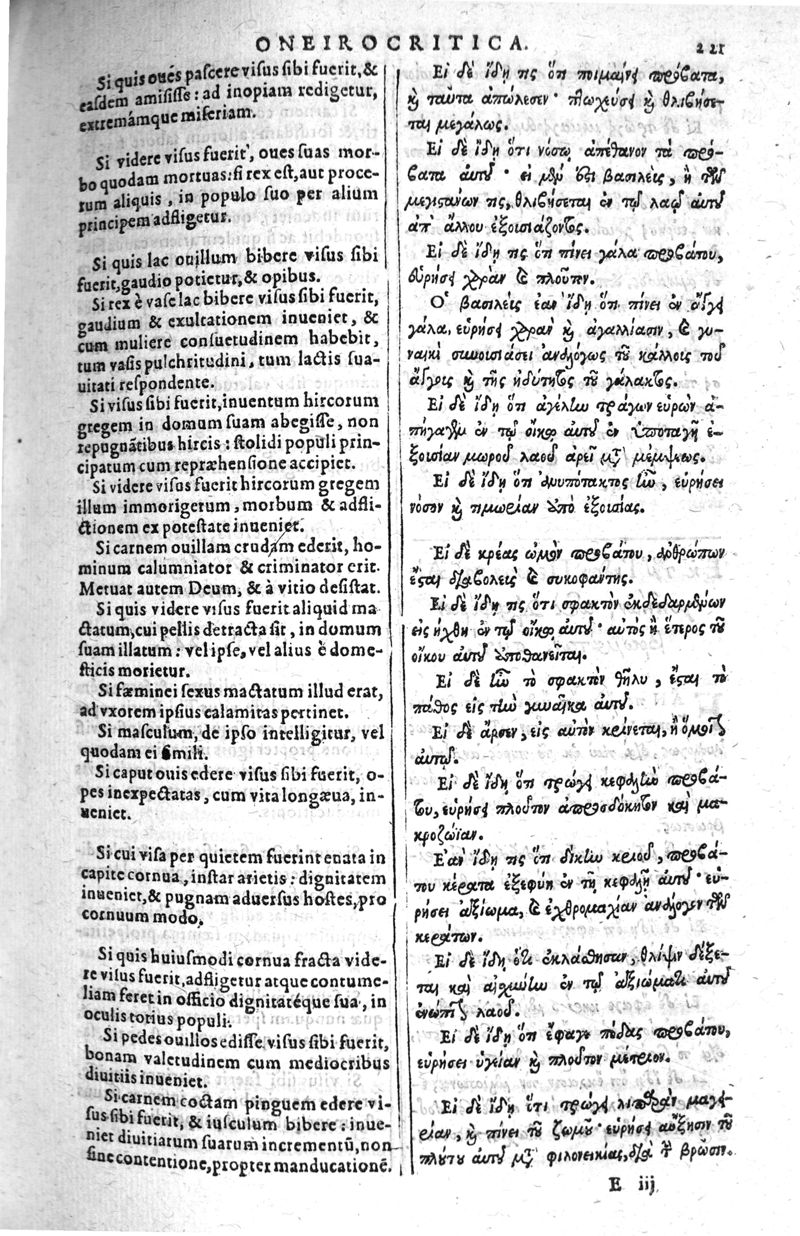 ONEIROCRITICA. 221
Si quis oués pascere visus sibi fuerit, &
easdem amisisse: ad inopiam redigetur,
extremámque miseriam.
Si videre visus fuerit, oues suas mor-
bo quodam mortuas: si rex est, aut proce-
rum aliquis, in populo suo per alium
principem adfligetur.
Si quis lac ouillum bibere visus sibi
fuerit, gaudio potietur, & opibus.
Si rex è vase lac bibere visus sibi fuerit,
gaudium & exultationem inueniet, &
cum muliere consuetudinem habebit,
tum vasis pulchritudini, tum lactis sua-
uitati respondente.
Si visus sibi fuerit, inuentum hircorum
gregem in domum suam abegisse, non
repugnātibus hircis: stolidi populi prin-
cipatum cum repræhensione accipiet.
Si videre visus fuerit hircorum gregem
illum immorigerum, morbum & adfli-
ctionem ex potestate inueniet.
Si carnem ouillam crudam ederit, ho-
minum calumniator & criminator erit.
Metuat autem Deum, & à vitio desistat.
Si quis videre visus fuerit aliquid ma
ctatum, cui pellis detracta sit, in domum
suam illatum: vel ipse, vel alius è dome-
sticis morietur.
Si fæminei sexus mactatum illud erat,
ad vxorem ipsius calamitas pertinet.
Si masculum, de ipso intelligitur, vel
quodam ei simili.
Si caput ouis edere visus sibi fuerit, o-
pes inexpectatas, cum vita longæua, in-
ueniet.
Si cui visa per quietem fuerint enata in
capite cornua, instar arietis: dignitatem
inueniet, & pugnam aduersus hostes, pro
cornuum modo.
Si quis huiusmodi cornua fracta vide-
re visus fuerit, adfligetur atque contume-
liam feret in officio dignitatéque sua, in
oculis totius populi.
Si pedes ouillos edisse visus sibi fuerit,
bonam valetudinem cum mediocribus
diuitiis inueniet.
Si carnem coctam pinguem edere vi-
sus sibi fuerit, & iusculum bibere: inue-
niet diuitiarum suarum incrementū, non
sine contentione, propter manducationē.
Εἰ δὲ ἴδῃ τις ὅτι ποιμαίνει πρόβατα,
καὶ ταῦτα ἀπώλεσεν· πτωχεύσει καὶ θλιβήσε-
ται μεγάλως.
Εἰ δὲ ἴδῃ ὅτι νόσῳ ἀπέθανον τὰ πρό-
βατα αὐτοῦ· εἰ μὲν ὅτι βασιλεὺς, ἢ τῶν
μεγιστάνων τις, θλιβήσεται ἐν τῷ λαῷ αὐτοῦ
ἀπ' ἄλλου ἐξουσιάζοντος.
Εἰ δὲ ἴδῃ τις ὅτι πίνει γάλα προβάτου,
εὑρήσει χαρὰν καὶ πλοῦτον.
Ὁ βασιλεὺς ἐὰν ἴδῃ ὅτι πίνει ἐν ἄγγει
γάλα, εὑρήσει χαρὰν καὶ ἀγαλλίασιν, καὶ γυ-
ναικὶ συνουσιάσει ἀναλόγως τοῦ κάλλους τοῦ
ἄγγους καὶ τῆς ἡδύτητος τοῦ γάλακτος.
Εἰ δὲ ἴδῃ ὅτι ἀγέλην τράγων εὑρὼν ἀ-
πήγαγεν ἐν τῷ οἴκῳ αὐτοῦ ἐν ὑποταγῇ ἐ-
ξουσίαν μωροῦ λαοῦ ἀρεῖ μετὰ μέμψεως.
Εἰ δὲ ἴδῃ ὅτι ἀνυπότακτος ἦν, εὑρήσει
νόσον καὶ τιμωρίαν ὑπὸ ἐξουσίας.
Εἰ δὲ κρέας ὠμὸν προβάτου, ἀνθρώπων
ἔσται διαβολεὺς καὶ συκοφαντής.
Εἰ δὲ ἴδῃ τις ὅτι σφακτὸν ἐκδεδαρμένον
εἰσήχθη ἐν τῷ οἴκῳ αὐτοῦ· αὐτὸς ἢ ἕτερος τοῦ
οἴκου αὐτοῦ ἀποθανεῖται.
Εἰ δὲ ἦν τὸ σφακτὸν θῆλυ, ἔσται τὸ
πάθος εἰς τὴν γυναῖκα αὐτοῦ.
Εἰ δὲ ἄρσεν, εἰς αὐτὸν κρίνεται, ἢ ὅμοιον
αὐτῷ.
Εἰ δὲ ἴδῃ ὅτι τρώγει κεφαλὴν προβά-
του, εὑρήσει πλοῦτον ἀπροσδόκητον καὶ μα-
κροζωΐαν.
Ἐὰν ἴδῃ τις ὅτι δίκην κριοῦ, προβά-
του κέρατα ἐξεφύη ἐν τῇ κεφαλῇ αὐτοῦ· εὑ-
ρήσει ἀξίωμα, καὶ ἐχθρομαχίαν ἀνάλογον τῶν
κεράτων.
Εἰ δὲ ἴδῃ ὅτι ἐκλάσθησαν, θλίψιν δέξε-
ται καὶ αἰσχύνην ἐν τῷ ἀξιώματι αὐτοῦ
ἐνώπιον λαοῦ.
Εἰ δὲ ἴδῃ ὅτι ἔφαγε πόδας προβάτου,
εὑρήσει ὑγείαν καὶ πλοῦτον μέτριον.
Εἰ δὲ ἴδῃ ὅτι τρώγει λιπαρὰν μαγει-
ρίαν, καὶ πίνει τοῦ ζωμοῦ· εὑρήσει αὔξησιν τοῦ
πλούτου αὐτοῦ μετὰ φιλονεικίας, διὰ τὴν βρῶσιν.
E iij